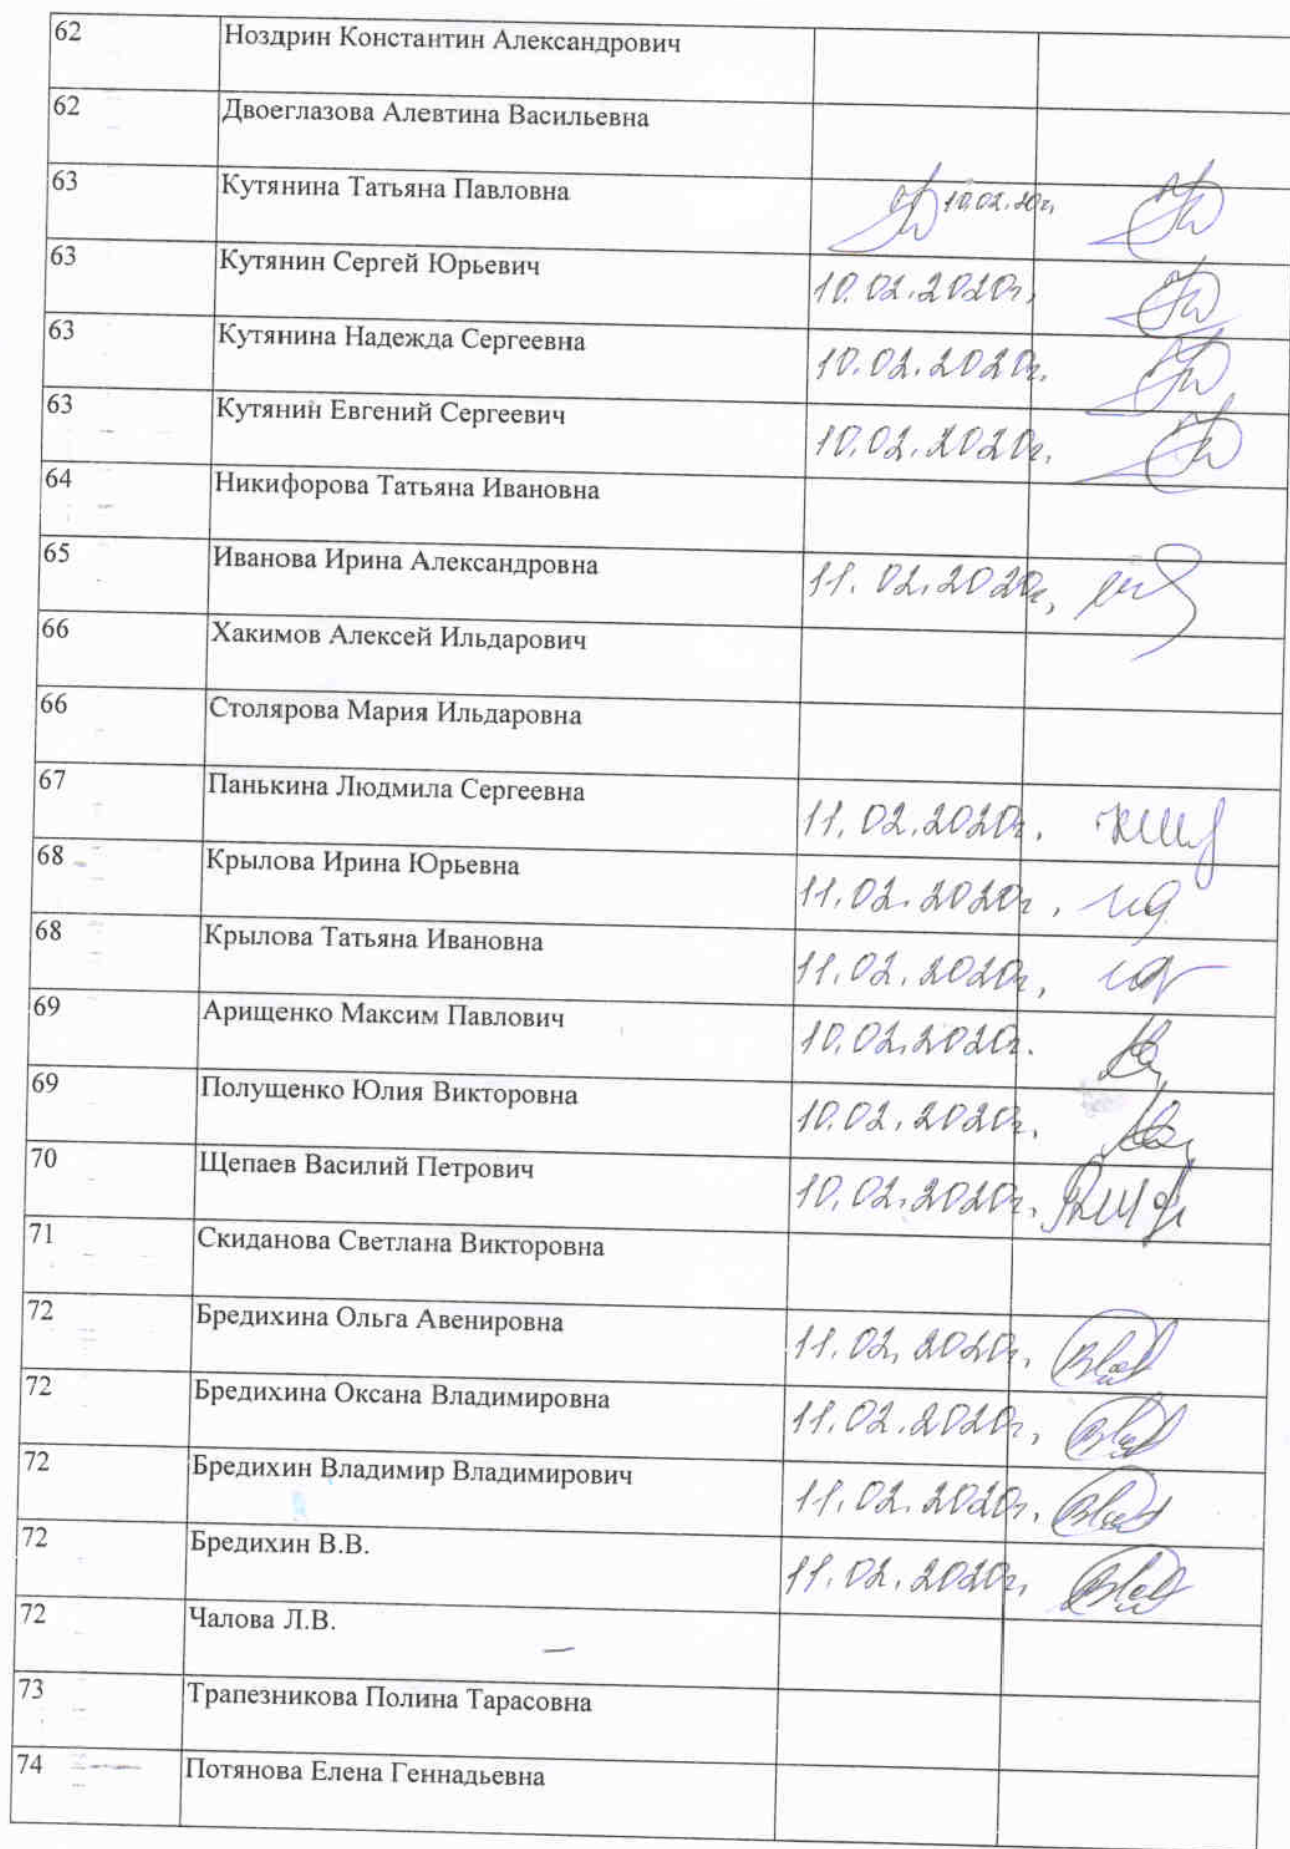 62 Ноздрин Константин Александрович
62 Двоеглазова Алевтина Васильевна
63 Кутянина Татьяна Павловна 10.02.20г.
63 Кутянин Сергей Юрьевич 10.02.2020г.
63 Кутянина Надежда Сергеевна 10.02.2020г.
63 Кутянин Евгений Сергеевич 10.02.2020г.
64 Никифорова Татьяна Ивановна
65 Иванова Ирина Александровна 11.02.2020г.
66 Хакимов Алексей Ильдарович
66 Столярова Мария Ильдаровна
67 Панькина Людмила Сергеевна 11.02.2020г.
68 Крылова Ирина Юрьевна 11.02.2020г.
68 Крылова Татьяна Ивановна 11.02.2020г.
69 Арищенко Максим Павлович 10.02.2020г.
69 Полущенко Юлия Викторовна 10.02.2020г.
70 Щепаев Василий Петрович 10.02.2020г.
71 Скиданова Светлана Викторовна
72 Бредихина Ольга Авенировна 11.02.2020г.
72 Бредихина Оксана Владимировна 11.02.2020г.
72 Бредихин Владимир Владимирович 11.02.2020г.
72 Бредихин В.В. 11.02.2020г.
72 Чалова Л.В.
73 Трапезникова Полина Тарасовна
74 Потянова Елена Геннадьевна